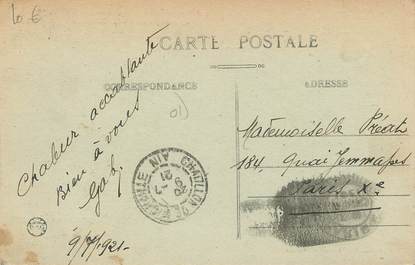 10 €
CARTE POSTALE
CORRESPONDANCE
ADRESSE
Chaleur accablante
Bien à vous
Gaby
9/7/1921-
Mademoiselle Préat
184, Quai Jemmapes
Paris Xe
CHATILLON DE
AIN